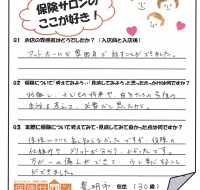 保険サロンの
ここが好き!
Q1 お店の雰囲気はどうでしたか?(入店前と入店後)
アットホームな雰囲気で話すことができました。
Q2 保険について考えてみよう・見直してみようと思ったきっかけは何ですか?
妊娠し、子どもの将来や自分たちの今後の
生活を考えて、必要だと思ったから。
Q3 実際に保険について考えてみて・見直してみて良かった点は何ですか?
保険について良く知らなかったですが、保険の
仕組みや、メリットがよく分かりました。
万が一の備えができて、安心することが
できました。
保険サロン
豊明市 在住(30歳)